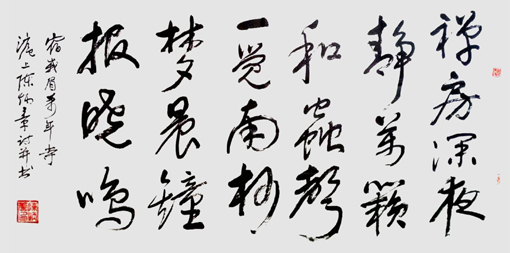 禅房深夜
静万籁
和蟲声
一觉南柯
梦晨鐘
报晓鸣
宿峨眉万年寺
沪上陈炳章诗并书